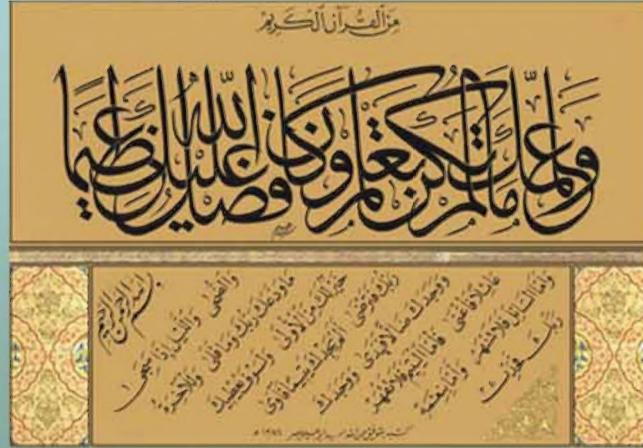 من القرآن الكريم
وعلمك ما لم تكن تعلم وكان فضل الله عليك عظيما
بسم الله الرحمن الرحيم
والضحى والليل إذا سجى
ما ودعك ربك وما قلى وللآخرة
خير لك من الأولى ولسوف يعطيك
ربك فترضى ألم يجدك يتيما فآوى
ووجدك ضالا فهدى ووجدك
عائلا فأغنى فأما اليتيم فلا تقهر
وأما السائل فلا تنهر وأما بنعمة
ربك فحدث